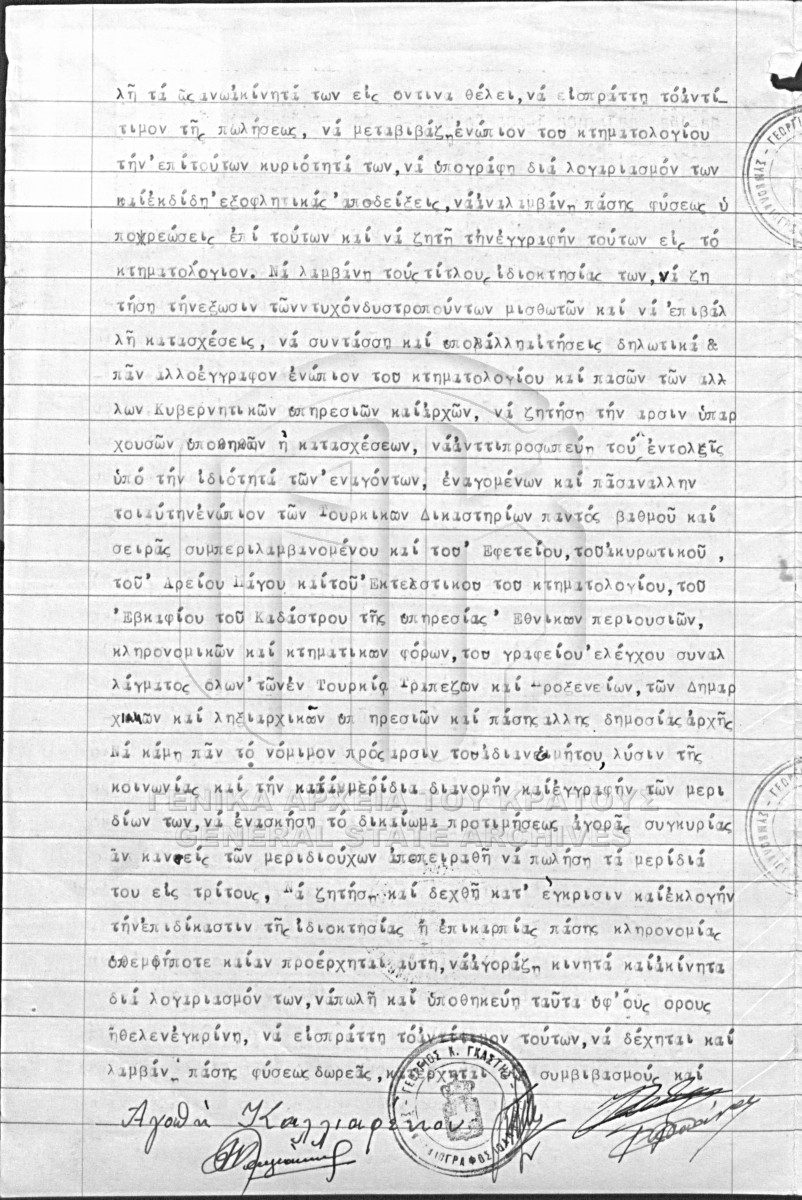 λῆ τά ὡς ἀνωἀκίνητά των εἰς οντινα θέλει, νά εἰσπράττη τόἀντί_
τιμον τῆς πωλήσεως, νά μεταβιβάζη ἐνώπιον του κτηματολογίου
τήν'επίτούτων κυριότητά των, νά ὑπογράφη διά λογαριασμόν των
καίἐκδίδη'εξοφλητικάς'αποδείξεις, νάἀναλαμβάνη πάσης φύσεως ὑ
ποχρεώσεις ἐπί τούτων καί νά ζητῆ τήνἐγγραφήν τούτων εἰς τό
κτηματολόγιον. Νά λαμβάνη τούςτίτλους ἰδιοκτησίας των, νά ζη
τήση τήνἐξωσιν τῶνντυχόνδυστροπούντων μισθωτῶν καί νά'επιβάλ
λῆ κατασχέσεις, νά συντάσση καί ὑποβάλληαἰτήσεις δηλωτικά &
πᾶν αλλοἔγγραφον ἐνώπιον του κτηματολογίου καί πασῶν τῶν αλ
λων Κυβερνητικῶν ὑπηρεσιῶν καίἀρχῶν, νά ζητήση τήν αρσιν ὑπαρ
χουσῶν ὑποθηκῶν ἡ κατασχέσεων, νάἀνττιπροσωπεύη τού ἐντολεῖς
ὑπό τήν ἰδιότητά τῶν'εναγόντων, ἐναγομένων καί πᾶσαναλλην
τοιαύτηνἐνώπιον τῶν Τουρκικῶν Δικαστηρίων παντός βαθμοῦ καί
σειρᾶς συμπεριλαμβανομένου καί του' Εφετείου, τοῦἀκυρωτικοῦ,
τοῦ' Αρείου Πάγου καίτοῦ'Εκτελεστικου του κτηματολογίου, τοῦ
'Εβκαφίου τοῦ Καδάστρου τῆς ὑπηρεσίας' Εθνικων περιουσιῶν,
κληρονομικῶν καί κτηματικων φόρων, του γραφείου'ελέγχου συναλ
λάγματος ὁλων'τῶνἐν Τουρκία Τραπεζῶν καί Προξενείων, τῶν Δημαρ
χιακῶν καί ληξιαρχικῶν ὑπ ηρεσιῶν καί πάσης αλλης δημοσίας ἀρχῆς
Νά κάμη πᾶν τό νόμιμον πρόςαρσιν τουἀδιανεμήτου, λύσιν τῆς
κοινωνίας καί τήν κατάμερίδια διανομήν καίἐγγραφήν τῶν μερι
δίων των, νά ἐνασκήση τό δικαίωμα προτιμήσεως ἀγορᾶς συγκυρίας
ἄν κανείς τῶν μεριδιούχων ἀποπειραθῆ νά πωλήση τά μερίδιά
του εἰς τρίτους, Νά ζητήση καί δεχθῆ κατ' ἔγκρισιν καίἐκλογήν
τήνἐπιδίκαστιν τῆς ἰδιοκτησίας ἤ ἐπικαρπίας πάσης κληρονομίας
ὁθενδήποτε καίαν προέρχηται αὐτη, νάἀγοράζη κινητά καίἀκίνητα
διά λογαριασμόν των, νάπωλῆ καί ὑποθηκεύη ταῦτα ὑφ'οὑς ορους
ἤθελενἐγκρίνη, νά εἰσπράττη τόἀντίτιμον τούτων, νά δέχηται καί
λαμβάνη πάσης φύσεως δωρεάς, κατέρχηται συμβιβασμούς καί
Αγαθή
ΓΕΩΡΓΙΟΣ Κ. ΓΚΑΣΤΗΣ
ΓΕΝΙΚΑ ΑΡΧΕΙΑ ΤΟΥ ΚΡΑΤΟΥΣ
GENERAL STATE ARCHIVES